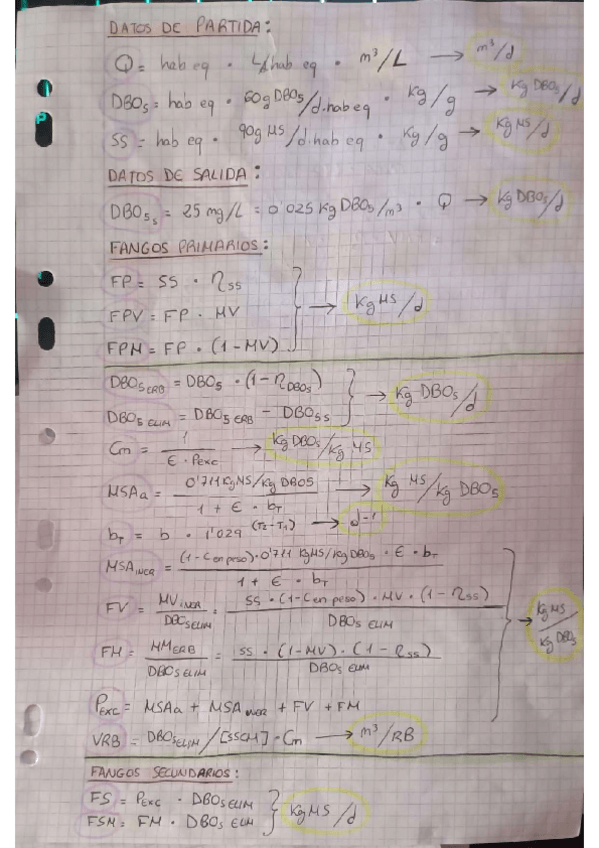 DATOS DE PARTIDA:
Q = hab eq · L/hab eq · m³/L → m³/d
DBO5 = hab eq · 60g DBO5/d·hab eq · Kg/g → Kg DBO5/d
SS = hab eq · 90g MS/d·hab eq · Kg/g → Kg MS/d
DATOS DE SALIDA:
DBO5s = 25 mg/L = 0'025 Kg DBO5/m³ · Q → Kg DBO5/d
FANGOS PRIMARIOS:
FP = SS · ηss
FPV = FP · MV → Kg MS/d
FPM = FP · (1-MV)
DBO5 ERB = DBO5 · (1-ηDBO5)
DBO5 ELIM = DBO5 ERB - DBO5s → Kg DBO5/d
Cm = 1/(Є · Pexc) → Kg DBO5/Kg MS
MSAa = 0'711 Kg MS/Kg DBO5 / (1 + Є · bT) → Kg MS/Kg DBO5
bT = b · 1'029 (T2-T1) → d-1
MSA INER = (1-C en peso)·0'711 Kg MS/Kg DBO5 · Є · bT / (1 + Є · bT)
FV = MV INER/DBO5 ELIM = SS · (1-C en peso) · MV · (1-ηss) / DBO5 ELIM
FM = MM ERB/DBO5 ELIM = SS · (1-MV) · (1-ηss) / DBO5 ELIM → Kg MS/Kg DBO5
PEXC = MSAa + MSA INER + FV + FM
VRB = DBO5 ELIM/[SSLM] · Cm → m³/RB
FANGOS SECUNDARIOS:
FS = PEXC · DBO5 ELIM
FSM = FM · DBO5 ELIM → Kg MS/d